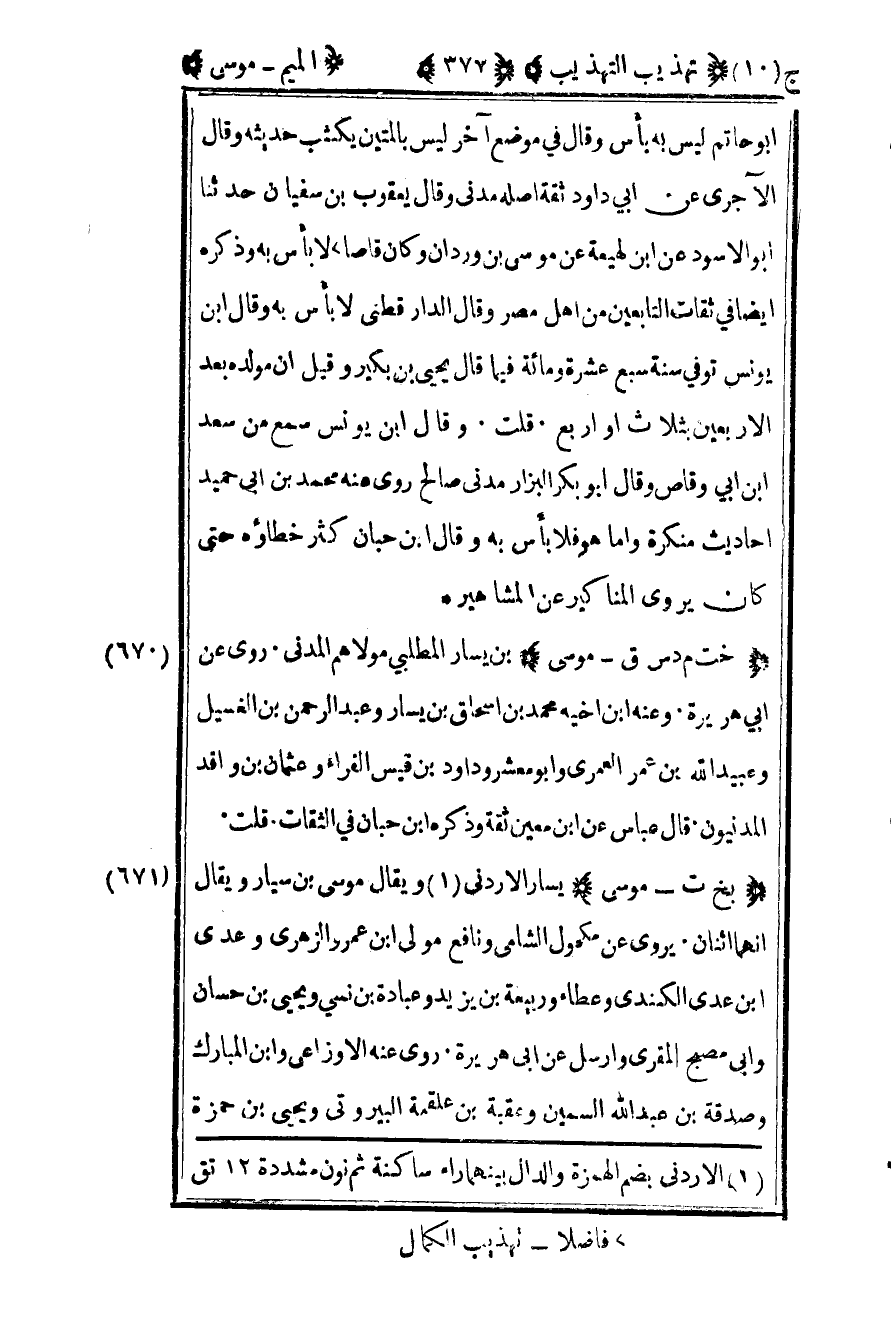 ج (١٠) ﴿ تهذيب التهذيب ﴾ ﴿ ٣٧٧ ﴾ ﴿ الميم - موسى ﴾
ابو حاتم ليس به بأس وقال في موضع آخر ليس بالمتين يكتب حديثه وقال
الآجرى عن ابي داود ثقة اصله مدنى وقال يعقوب بن سفيان حدثنا
ابو الاسود عن ابن لهيعة عن موسى بن وردان وكان قاصا > لا بأس به وذكره
ايضا في ثقات التابعين من اهل مصر وقال الدار قطنى لا بأس به وقال ابن
يونس توفي سنة سبع عشرة ومائة فيما قال يحيى بن بكير و قيل ان مولده بعد
الاربعين بثلاث او اربع ٠ قلت ٠ وقال ابن يونس سمع من سعد
ابن ابي وقاص وقال ابو بكر البزار مدنى صالح روى عنه محمد بن ابي حميد
احاديث منكرة واما هو فلا بأس به وقال ابن حبان كثر خطاؤه حتى
كان يروى المناكير عن المشاهير *
(٦٧٠) ﴿ خت م د س ق - موسى ﴾ بن يسار المطلبي مولاهم المدنى ٠ روى عن
ابي هريرة ٠ وعنه ابن اخيه محمد بن اسحاق بن يسار وعبد الرحمن بن الغسيل
وعبيد الله بن عمر العمرى وابو معشر وداود بن قيس الفراء و عثمان بن واقد
المدنيون ٠ قال عباس عن ابن معين ثقة وذكره ابن حبان في الثقات ٠ قلت ٠
(٦٧١) ﴿ بخ ت - موسى ﴾ يسار الاردنى (١) ويقال موسى بن سيار ويقال
انهما اثنان ٠ يروى عن مكحول الشامى ونافع مولى ابن عمر والزهرى وعدى
ابن عدى الكندى وعطاء وربيعة بن يزيد وعبادة بن نسي ويحيى بن حسان
وابى مصبح المقرى وارسل عن ابى هريرة ٠ روى عنه الاوزاعى وابن المبارك
وصدقة بن عبد الله السمين وعقبة بن علقمة البيروتى ويحيى بن حمزة
(١) الاردنى بضم الهمزة والدال بينهما راء ساكنة ثم نون مشددة ١٢ تق
> فاضلا - تهذيب الكمال